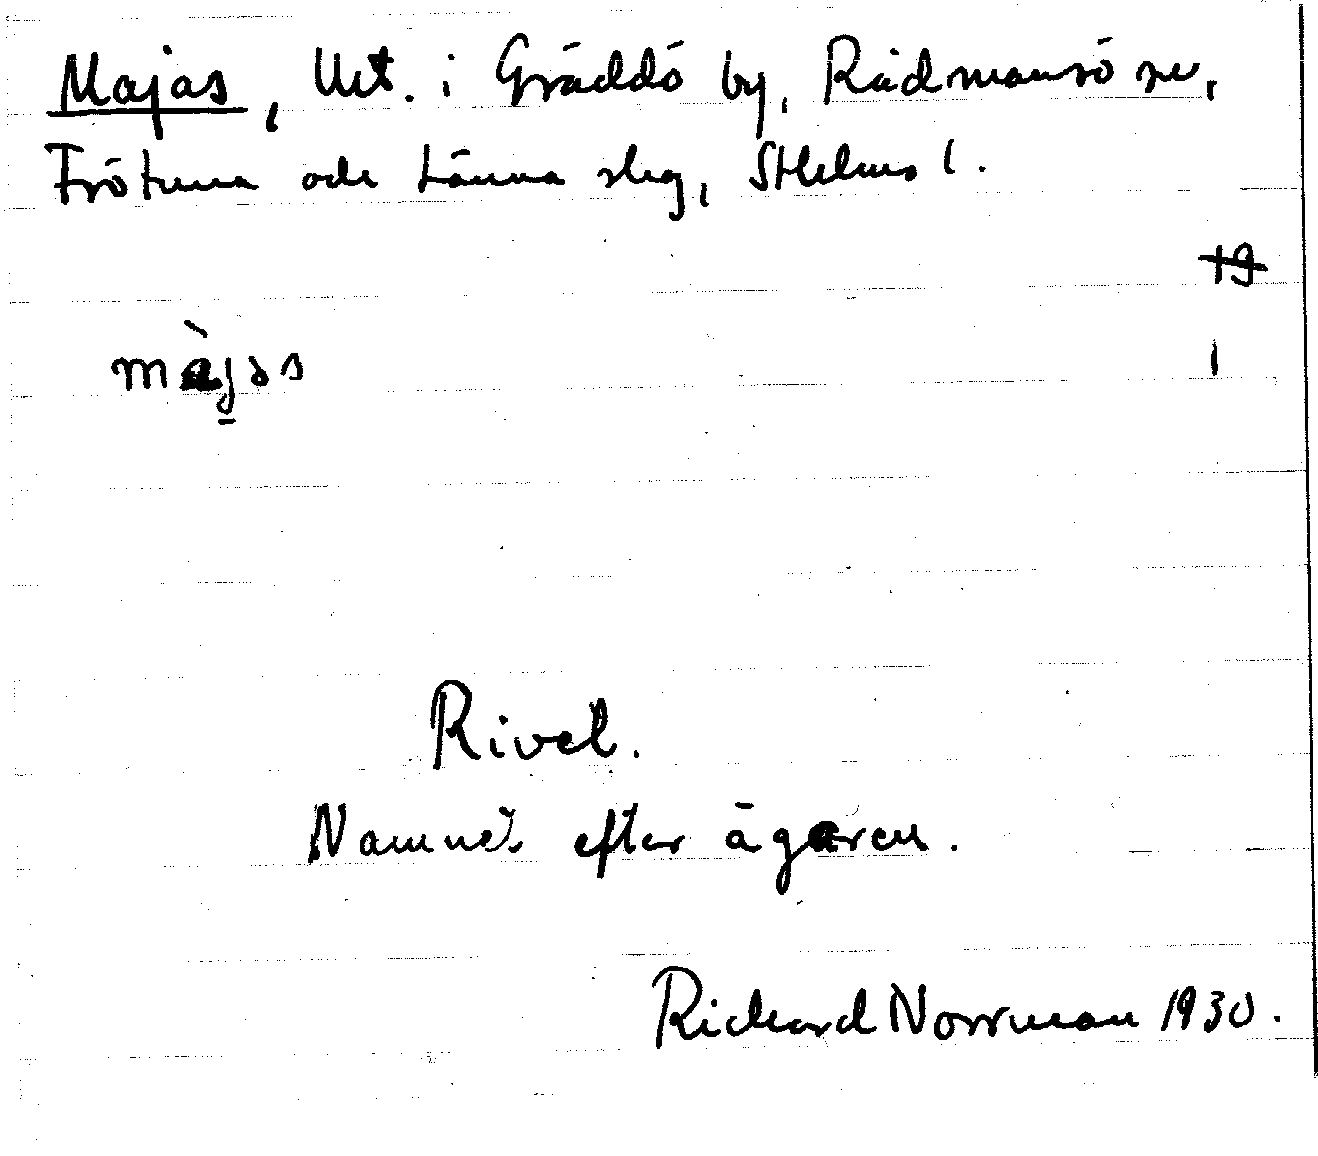 Majas, Utt. i Gräddö by, Rådmansö sn,
Frötuna och Länna skg, Sthlms l.
19
màjas
1
Rivet.
Namnet efter ägaren.
Richard Norrman 1930.